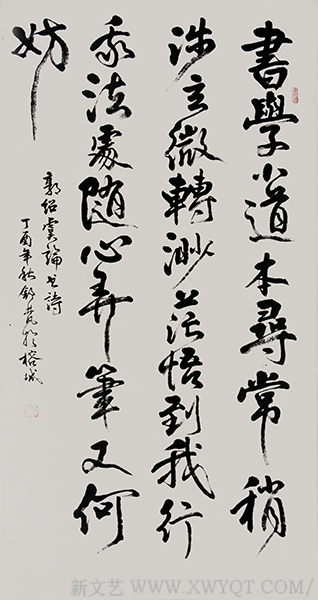 書學小道本尋常稍
涉玄微轉渺茫悟到我行
我法處隨心弄筆又何
妨
郭紹虞論書詩
丁酉年秋於榕城
新文艺 WWW.XWYQT.COM/